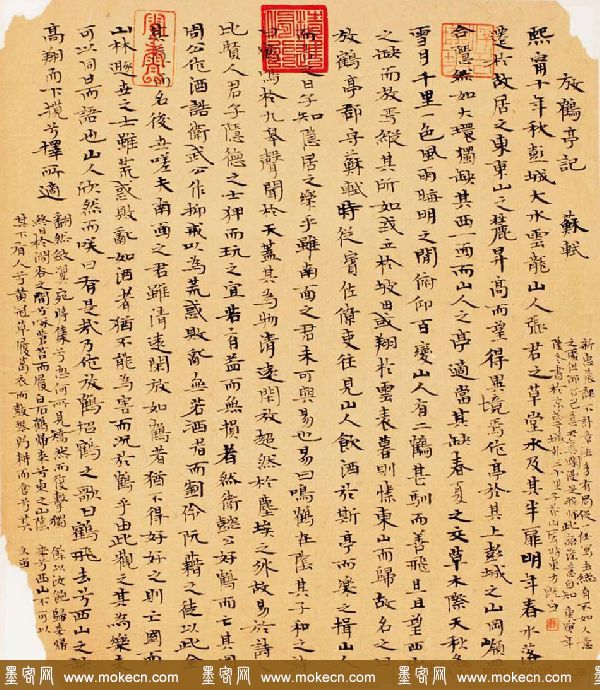 放鶴亭記 蘇軾
熙甯十年秋彭城大水雲龍山人張君之草堂水及其半扉明年春水落
遷於故居之東東山之麓昇高而望得異境焉作亭於其上彭城之山岡嶺
合隱然如大環獨缺其西一面而山人之亭適當其缺春夏之交草木際天秋冬
雪月千里一色風雨晦明之間俯仰百變山人有二鶴甚馴而善飛旦旦望西
之缺而放焉縱其所如或立於陂田或翔於雲表暮則傃東山而歸故名之
放鶴亭郡守蘇軾時從賓佐僚吏往見山人飲酒於斯亭而樂之揖山人
而 之曰子知隱居之樂乎雖南面之君未可與易也易曰鳴鶴在陰其子和之
曰鶴鳴於九皋聲聞於天蓋其為物清遠閑放超然於塵埃之外故易詩人
比賢人君子隱德之士狎而玩之宜若有益而無損者然衛懿公好鶴而亡其
周公作酒誥衛武公作抑戒以為荒惑敗亂無若酒者而劉伶阮籍之徒以此全
其 而名後世嗟夫南面之君雖清遠閑放如鶴者猶不得好好之則亡國而
山林遯世之士雖荒惑敗亂如酒者猶不能為害而況於鶴乎由此觀之其為樂
可以同日而語也山人欣然而笑曰有是哉乃作放鶴招鶴之歌曰鶴飛去兮西山之
高翔而下覽兮擇所適
翻然斂翼宛將集兮忽何所見矯然而復擊獨
終日於澗谷之間兮啄蒼苔而履白石鶴歸來兮東山之陰
其下有人兮黃冠草履葛衣而鼓琴躬耕而食兮其
餘以汝飽歸來歸
來兮西山不可以
墨客网 www.mokecn.com 墨客网 www.mokecn.com 墨客网 www.mokecn.com